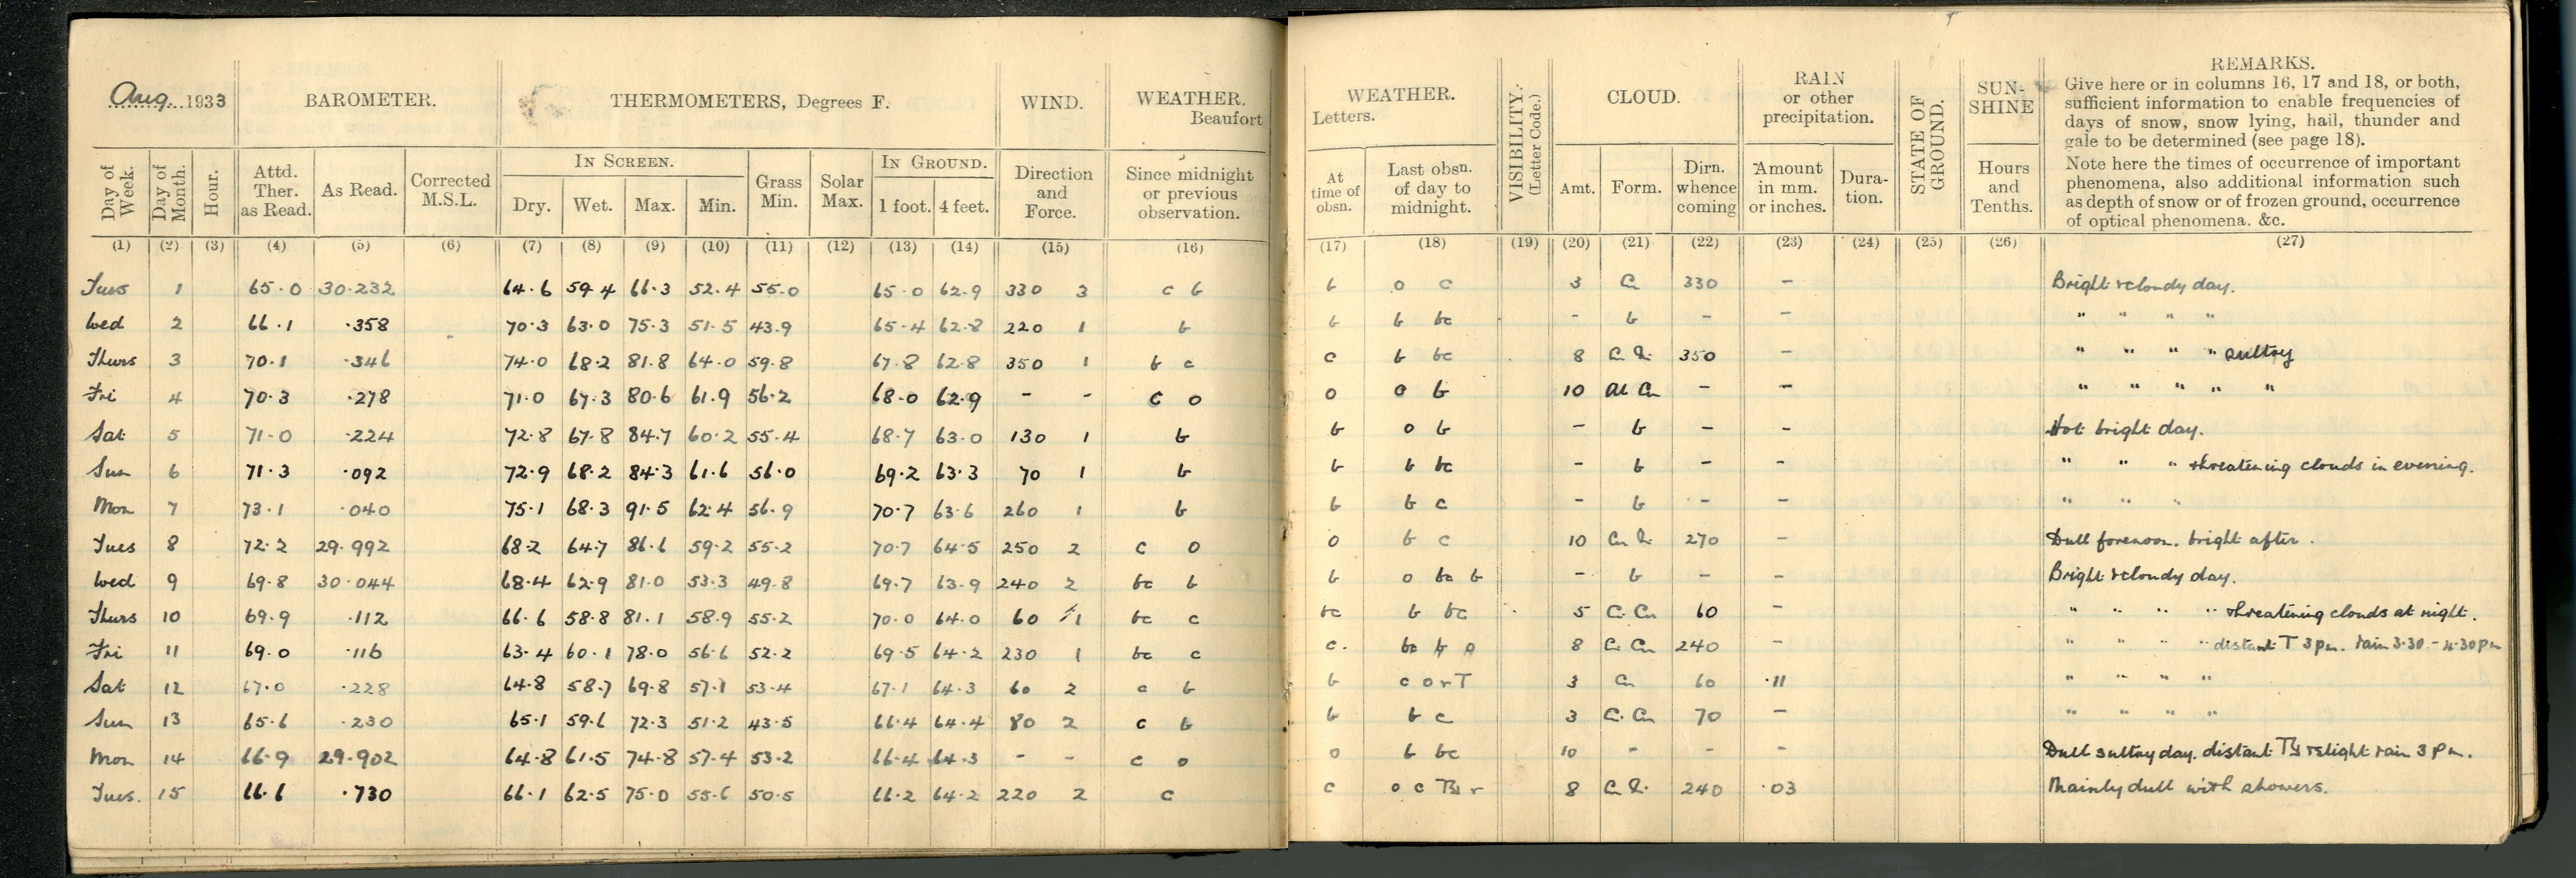 Aug. 1933 BAROMETER. THERMOMETERS, Degrees F. WIND. WEATHER. Beaufort
Day of Week. Day of Month. Hour. Attd. Ther. as Read. As Read. Corrected M.S.L. IN SCREEN. Dry. Wet. Max. Min. Grass Min. Solar Max. IN GROUND. 1 foot. 4 feet. Direction and Force. Since midnight or previous observation.
(1) (2) (3) (4) (5) (6) (7) (8) (9) (10) (11) (12) (13) (14) (15) (16)
Tues 1 65.0 30.232 64.6 59.4 66.3 52.4 55.0 65.0 62.9 330 3 c b
Wed 2 66.1 .358 70.3 63.0 75.3 51.5 43.9 65.4 62.8 220 1 b
Thurs 3 70.1 .346 74.0 68.2 81.8 64.0 59.8 67.8 62.8 350 1 b c
Fri 4 70.3 .278 71.0 67.3 80.6 61.9 56.2 68.0 62.9 - - c o
Sat 5 71.0 .224 72.8 67.8 84.7 60.2 55.4 68.7 63.0 130 1 b
Sun 6 71.3 .092 72.9 68.2 84.3 61.6 56.0 69.2 63.3 70 1 b
Mon 7 73.1 .040 75.1 68.3 91.5 62.4 56.9 70.7 63.6 260 1 b
Tues 8 72.2 29.992 68.2 64.7 86.6 59.2 55.2 70.7 64.5 250 2 c o
Wed 9 69.8 30.044 68.4 62.9 81.0 53.3 49.8 69.7 63.9 240 2 bc b
Thurs 10 69.9 .112 66.6 58.8 81.1 58.9 55.2 70.0 64.0 60 1 bc c
Fri 11 69.0 .116 63.4 60.1 78.0 56.6 52.2 69.5 64.2 230 1 bc c
Sat 12 67.0 .228 64.8 58.7 69.8 57.1 53.4 67.1 64.3 60 2 c b
Sun 13 65.6 .230 65.1 59.6 72.3 51.2 43.5 66.4 64.4 80 2 c b
Mon 14 66.9 29.902 64.8 61.5 74.8 57.4 53.2 66.4 64.3 - - c o
Tues. 15 66.6 .730 66.1 62.5 75.0 55.6 50.5 66.2 64.2 220 2 c
WEATHER. Letters. VISIBILITY. (Letter Code.) CLOUD. RAIN or other precipitation. STATE OF GROUND. SUN-SHINE REMARKS.
Give here or in columns 16, 17 and 18, or both,
sufficient information to enable frequencies of
days of snow, snow lying, hail, thunder and
gale to be determined (see page 18).
Note here the times of occurrence of important
phenomena, also additional information such
as depth of snow or of frozen ground, occurrence
of optical phenomena. &c.
At time of obsn. Last obsn. of day to midnight. Amt. Form. Dirn. whence coming Amount in mm. or inches. Dura-tion. Hours and Tenths.
(17) (18) (19) (20) (21) (22) (23) (24) (25) (26) (27)
b o c 3 Cu 330 - Bright & cloudy day.
b b bc - b - - " " " "
c b bc 8 350 - " " " " sultry
o o b 10 Al Cu - - " " " " "
b o b - b - - Hot bright day.
b b bc - b - - " " " threatening clouds in evening.
b b c - b - - " " "
o b c 10 270 - Dull forenoon. bright after.
b o bc b - b - - Bright & cloudy day.
bc b bc 5 C. Cu 60 - " " " " threatening clouds at night.
c. bc b o 8 C. Cu 240 - " " " " distant T 3 pm. rain 3.30 - 4.30 pm
b c o r T 3 Cu 60 .11 " " " "
b b c 3 C. Cu 70 - " " " "
o b bc 10 - - - Dull sultry day. distant & slight rain 3 pm.
c o c r 8 240 .03 Mainly dull with showers.